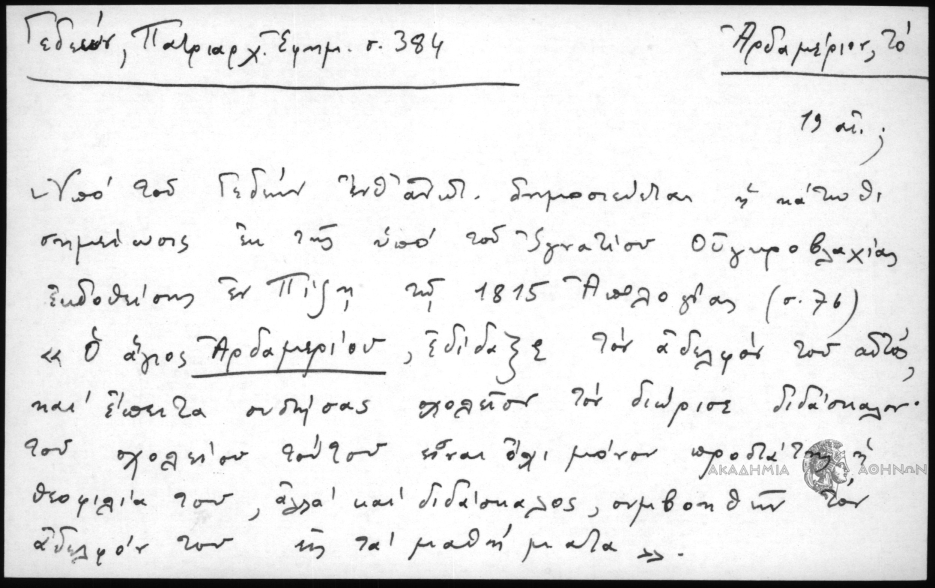 Γεδεών, Πατριαρχ. Ἐφημ. σ. 384
Ἀρδαμέριον, τό
19 αἰ. ;
Ὑπό τοῦ Γεδεών ἔνθ' ἀνωτ. δημοσιεύεται ἡ κάτωθι
σημείωσις ἐκ τῆς ὑπό τοῦ Ἰγνατίου Οὑγκροβλαχίας
ἐκδοθείσης ἐν Πίζῃ τῷ 1815 Ἀπολογίας (σ. 76)
« Ὁ ἅγιος Ἀρδαμερίου, ἐδίδαξε τόν ἀδελφόν του αὐτός,
καί ἔπειτα συστήσας σχολεῖον τόν διώρισε διδάσκαλον·
τοῦ σχολείου τούτου εἶναι ὄχι μόνον προστάτης ἡ
θεοφιλία του, ἀλλά καί διδάσκαλος, συμβοηθῶν τόν
ἀδελφόν του εἰς τά μαθήματα ».
ΑΚΑΔΗΜΙΑ ΑΘΗΝΩΝ